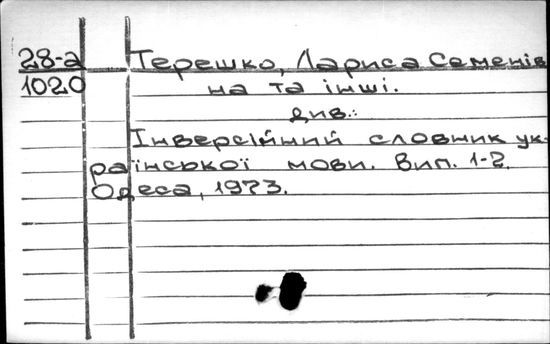 28-а Терешко, Лариса Семенів
1020 на та інші.
див.:
Інверсійний словник ук-
раїнської мови. Вип. 1-2.
Одеса, 1973.